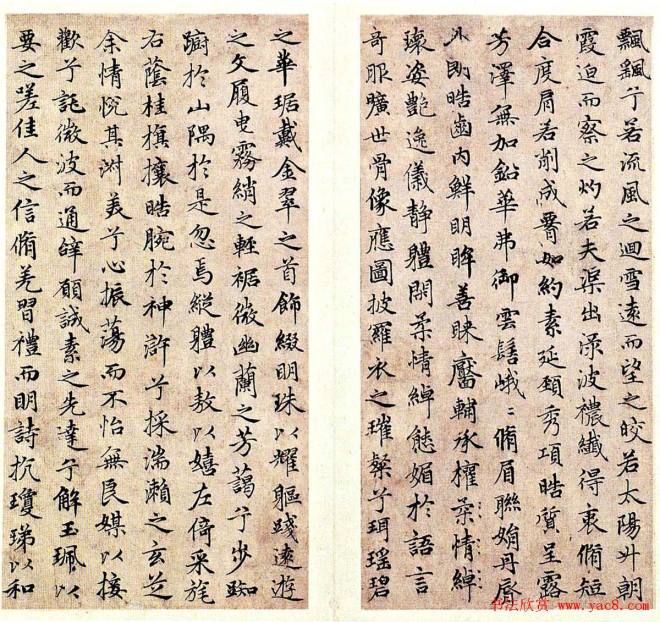 飄飄兮若流風之迴雪遠而望之皎若太陽升朝
霞迫而察之灼若夫渠出淥波襛纖得衷脩短
合度肩若削成腰如約素延頸秀項皓質呈露
芳澤無加鉛華弗御雲髻峨〻脩眉聯娟丹脣
外朗皓齒內鮮明眸善睞靨輔承權柔情綽
瓌姿艷逸儀靜體閑柔情綽態媚於語言
奇服曠世骨像應圖披羅衣之璀粲兮珥瑤碧
之華琚戴金翠之首飾綴明珠以耀軀踐遠遊
之文履曳霧綃之輕裾微幽蘭之芳藹兮步踟
躕於山隅於是忽焉縱體以敖以嬉左倚采旄
右蔭桂旗攘皓腕於神滸兮採湍瀨之玄芝
余情悅其淑美兮心振蕩而不怡無良媒以接
歡兮託微波而通辭願誠素之先達兮解玉珮以
要之嗟佳人之信脩羌習禮而明詩抗瓊珶以和
书法欣赏 www.yac8.com